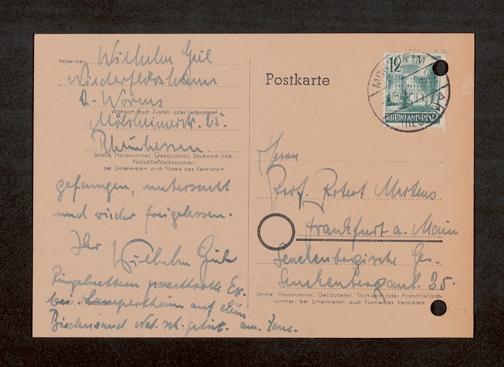 Absender:
Wilhelm Geil
Niederflörsheim
b. Worms
Wohnort, auch Zustell- oder Leitpostamt
Mölsheimerstr. 25.
Rheinhessen.
Straße, Hausnummer, Gebäudeteil, Stockwerk oder
Postschließfachnummer;
bei Untermietern auch Name des Vermieters
gefangen, untersucht
und wieder freigelassen.
Ihr Wilhelm Geil
bei Lampertheim auf dem
Postkarte
12
RHEINLAND-PFALZ
Herrn
Prof. Robert Mertens
Frankfurt a. Main
Senckenbergische Ge-
Senckenberganl. 25.
Straße, Hausnummer, Gebäudeteil, Stockwerk oder Postschließfach-
nummer; bei Untermietern auch Name des Vermieters